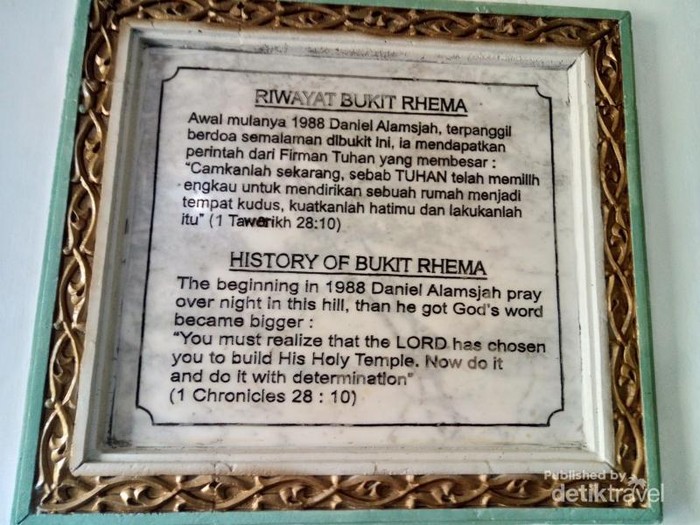 RIWAYAT BUKIT RHEMA
Awal mulanya 1988 Daniel Alamsjah, terpanggil
berdoa semalaman dibukit ini, ia mendapatkan
perintah dari Firman Tuhan yang membesar :
"Camkanlah sekarang, sebab TUHAN telah memilih
engkau untuk mendirikan sebuah rumah menjadi
tempat kudus, kuatkanlah hatimu dan lakukanlah
itu" (1 Tawarikh 28:10)
HISTORY OF BUKIT RHEMA
The beginning in 1988 Daniel Alamsjah pray
over night in this hill, than he got God's word
became bigger :
"You must realize that the LORD has chosen
you to build His Holy Temple. Now do it
and do it with determination"
(1 Chronicles 28 : 10)
Published by
detiktravel